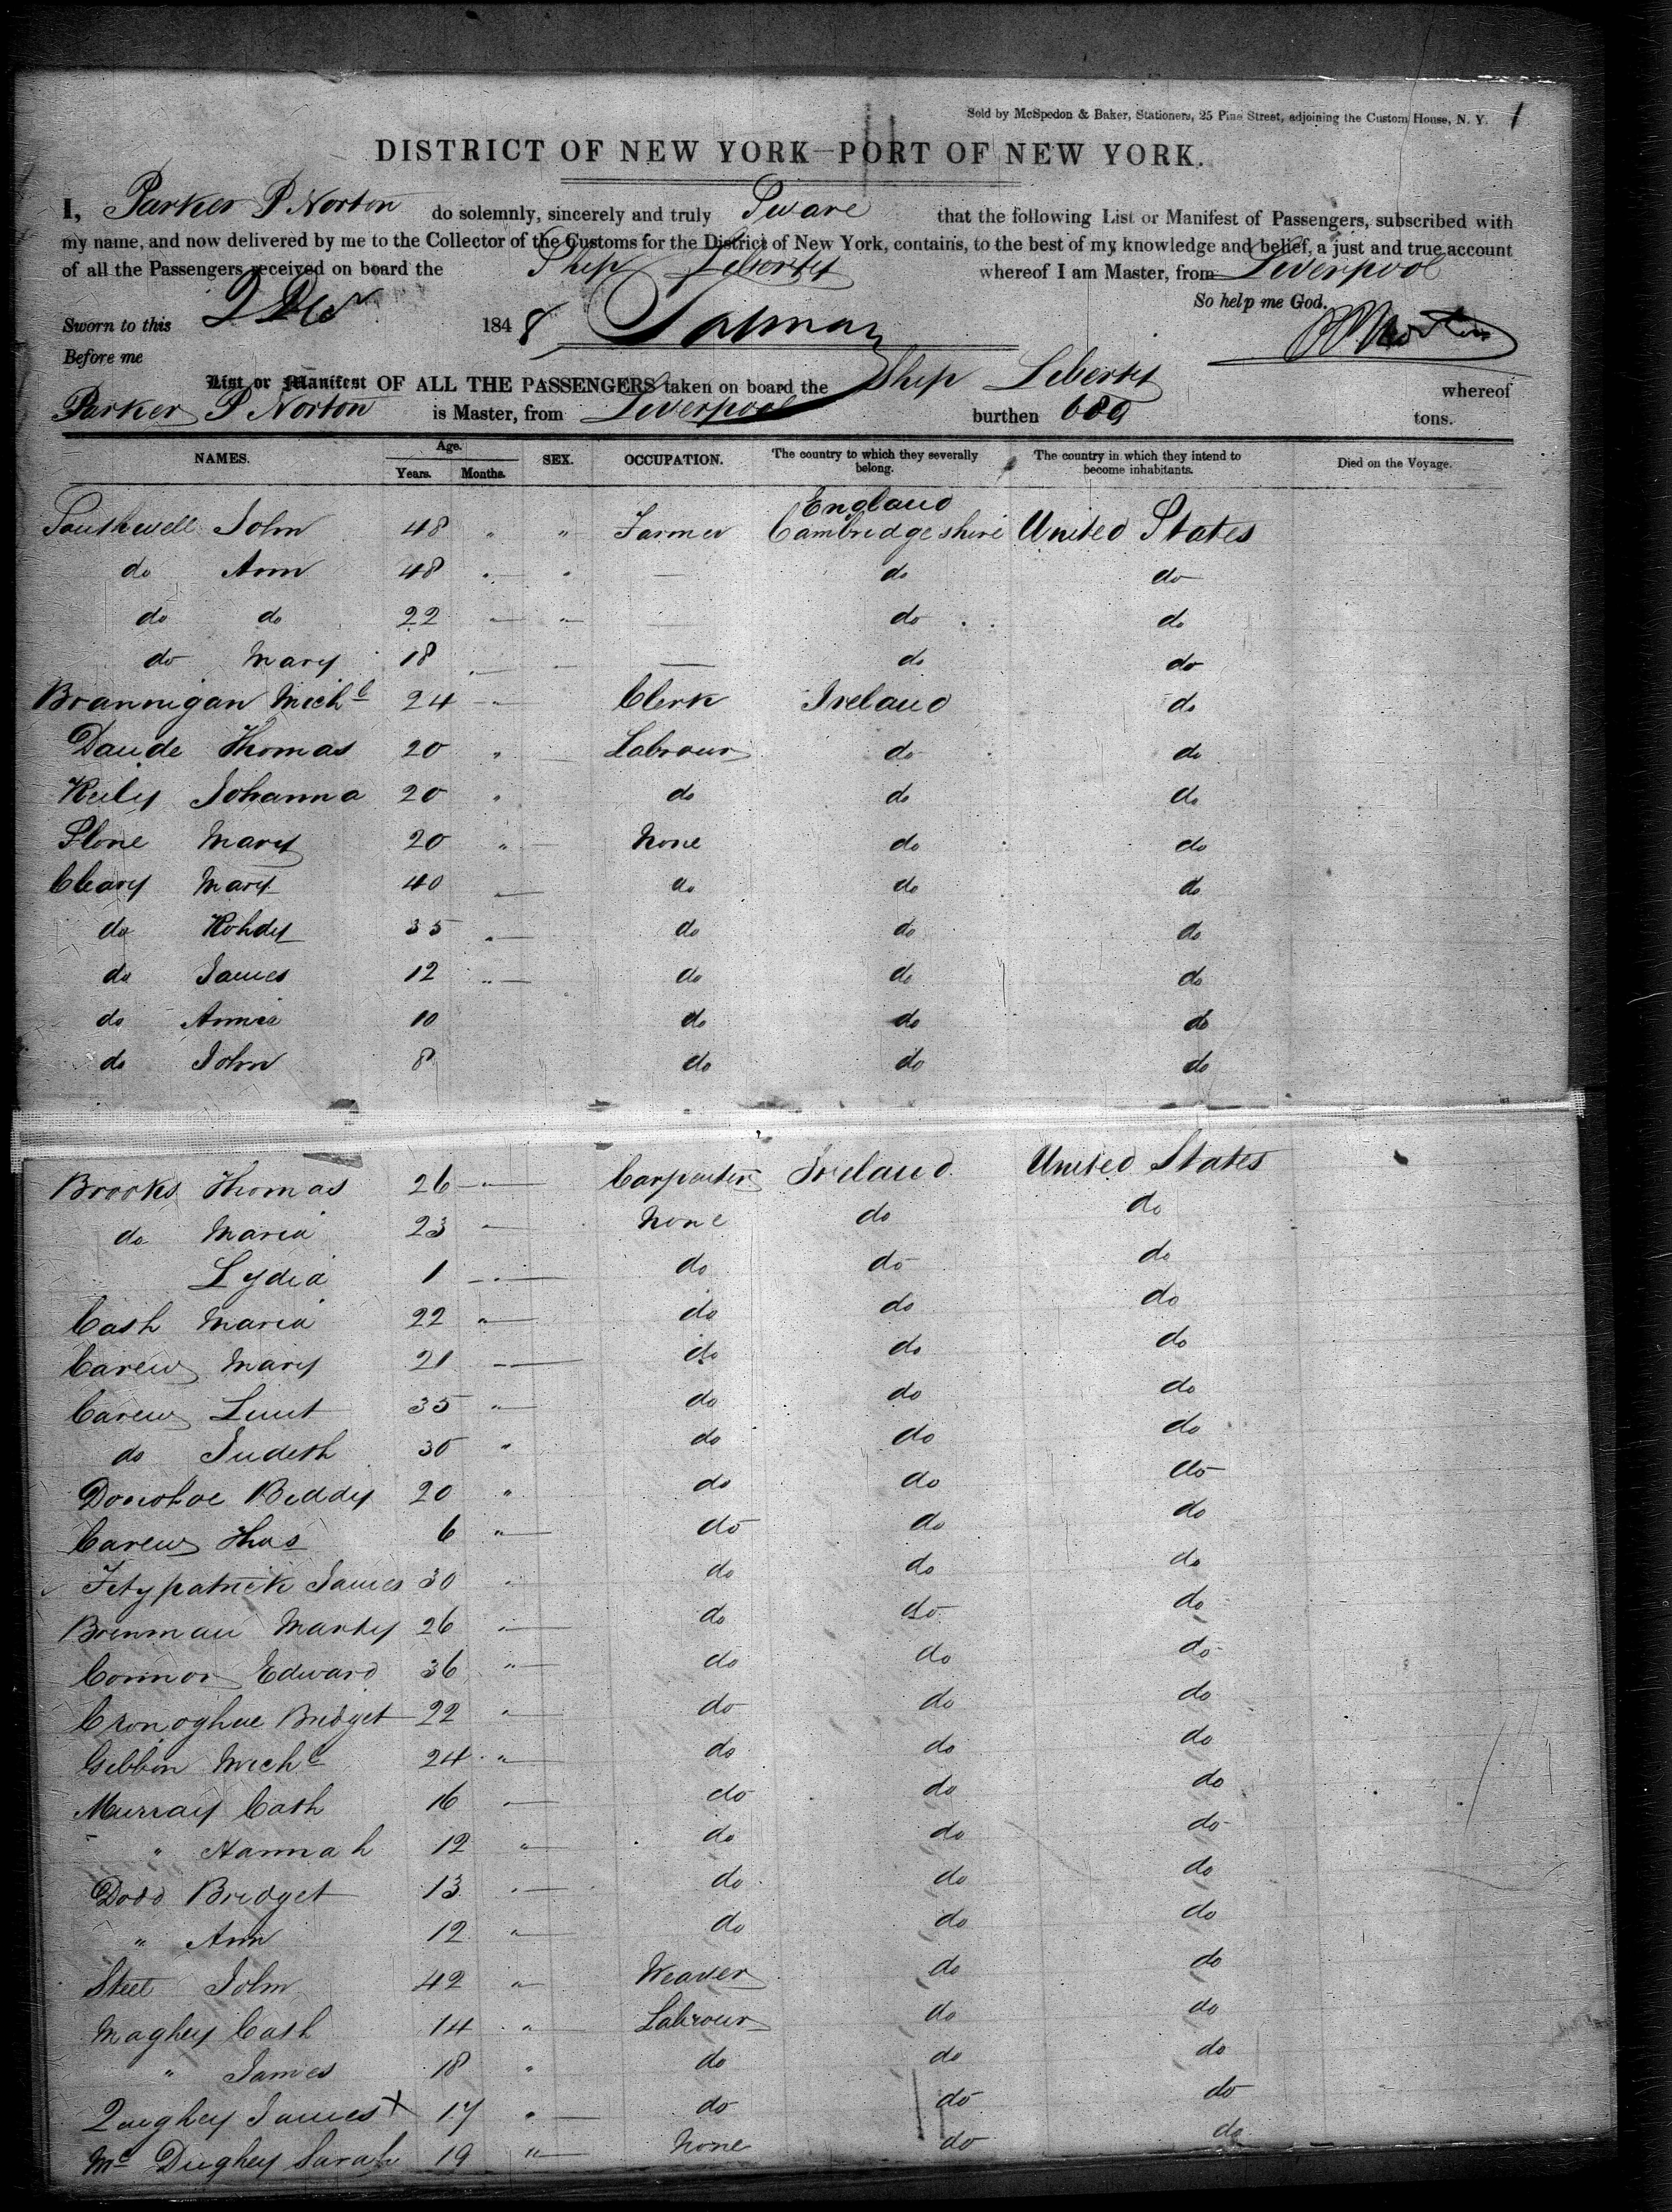 Sold by McSpedon & Baker, Stationers, 25 Pine Street, adjoining the Custom House, N. Y. 1
DISTRICT OF NEW YORK—PORT OF NEW YORK.
I, Parker P Norton do solemnly, sincerely and truly Sware that the following List or Manifest of Passengers, subscribed with
my name, and now delivered by me to the Collector of the Customs for the District of New York, contains, to the best of my knowledge and belief, a just and true account
of all the Passengers received on board the Ship Liberty whereof I am Master, from Liverpool
So help me God.
Sworn to this 2 Dec 1848 P P Norton
Before me
List or Manifest OF ALL THE PASSENGERS taken on board the Ship Liberty whereof
Parker P Norton is Master, from Liverpool burthen 689 tons.
NAMES. Age. Years. Months. SEX. OCCUPATION. The country to which they severally belong. The country in which they intend to become inhabitants. Died on the Voyage.
England
Southwell John 48 " " Farmer Cambridgeshire United States
do Ann 48 " " — do do
do do 22 " " — do do
do Mary 18 — do do
Brannigan Michl 24 " Clerk Ireland do
Daude Thomas 20 " Labrour do do
Keily Johanna 20 " do do do
Slone Mary 20 " None do do
Cleary Mary 40 " do do do
do 35 " do do do
do James 12 " do do do
do Annie 10 do do do
do John 8 do do do
Brooks Thomas 26 " Carpenter Ireland United States
do Maria 23 " None do do
Lydia 1 " do do do
Cash Maria 22 " do do do
Carew Mary 21 " do do do
Carew 35 " do do do
do Judeth 30 " do do do
Donohoe Biddy 20 " do do do
Carew Thos 6 " do do do
Fitzpatrick James 30 " do do do
Brennan Marty 26 " do do do
Connor Edward 36 " do do do
Cronoghue Bridget 22 " do do do
Gibbon Michl 24 " do do do
Murray Cath 16 " do do do
" Hannah 12 " do do do
Dodd Bridget 13 " do do do
" Ann 12 " do do do
Steel John 42 " Weaver do do
Maghey Cath 14 " Labrour do do
" James 18 " do do do
Quighey James X 17 " do do do
Mc Dughey Sarah 19 " None do do